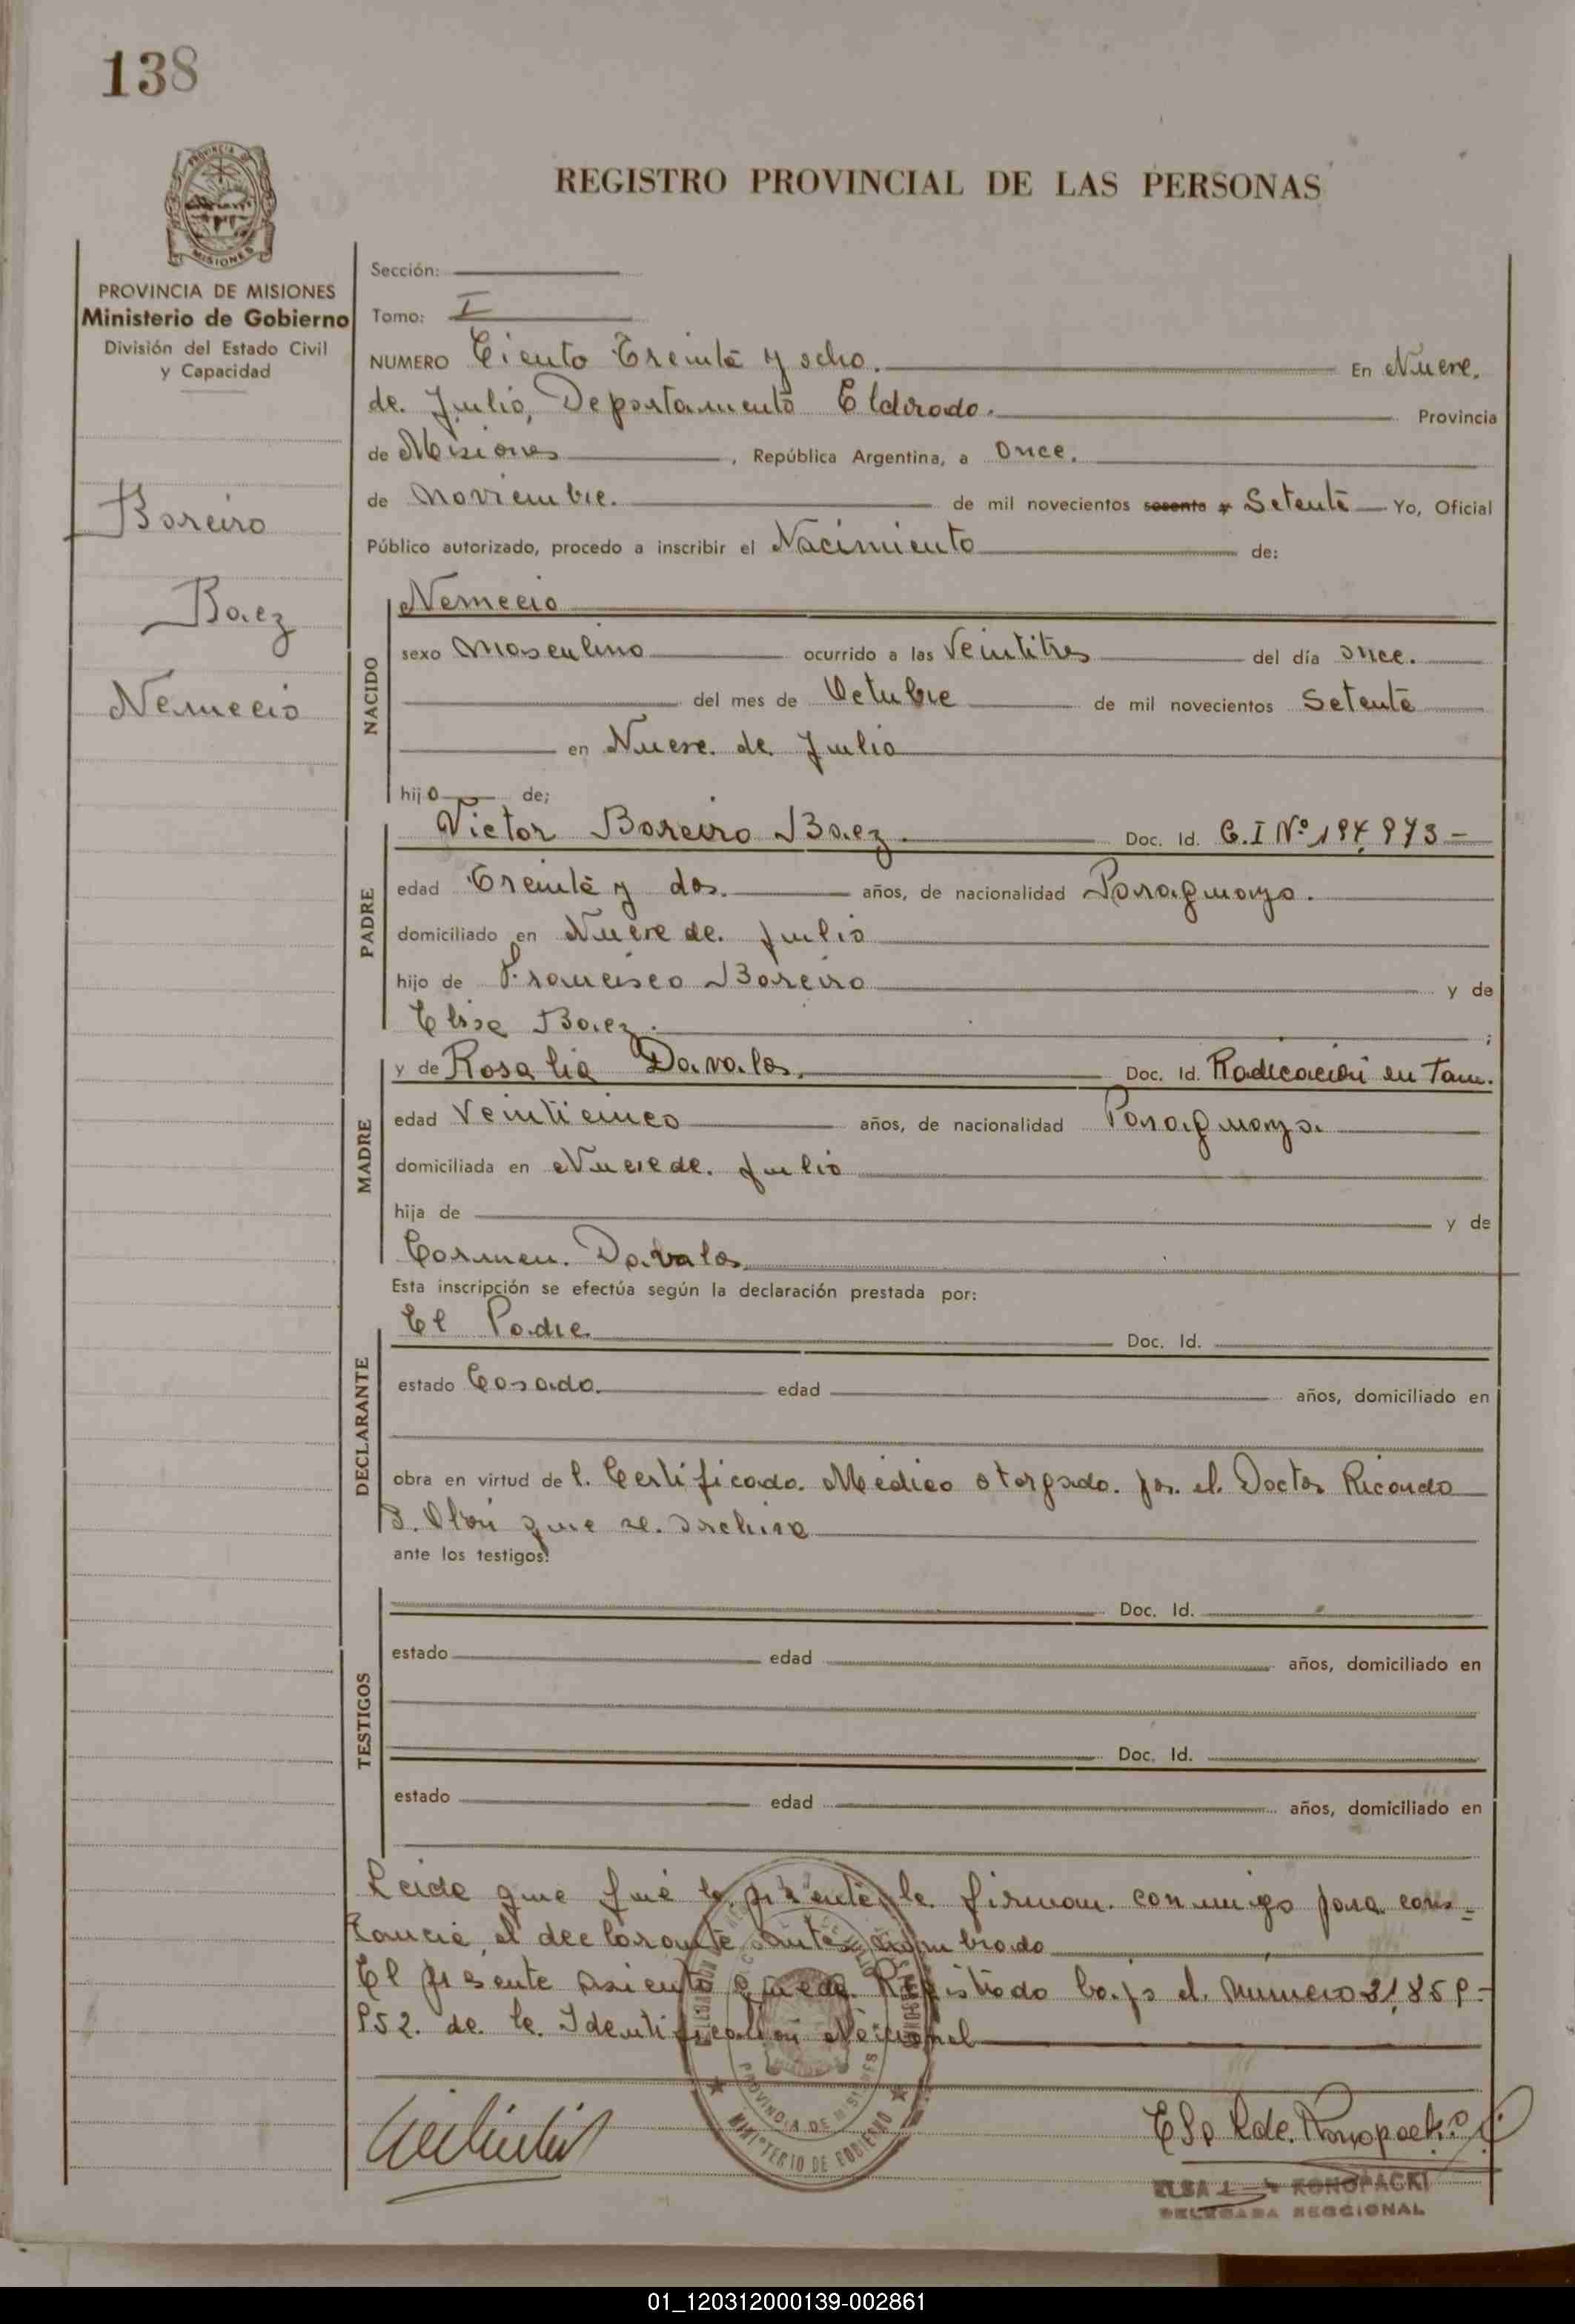 138
PROVINCIA DE
MISIONES
REGISTRO PROVINCIAL DE LAS PERSONAS
PROVINCIA DE MISIONES
Ministerio de Gobierno
División del Estado Civil
y Capacidad
Boreiro
Baez
Nemecio
Sección:
Tomo: I
NUMERO Ciento Treinta y ocho. En Nueve.
de. Julio, Departamento Eldorado. Provincia
de Misiones, República Argentina, a Once.
de Noviembre. de mil novecientos sesenta y Setenta Yo, Oficial
Público autorizado, procedo a inscribir el Nacimiento de:
NACIDO
Nemecio
sexo Masculino ocurrido a las Veintitres del día once.
del mes de Octubre de mil novecientos Setenta
en Nueve. de Julio
hijo de;
PADRE
Victor Boreiro Baez. Doc. Id. C.I Nº 194.973-
edad Treinta y dos. años, de nacionalidad Paraguayo.
domiciliado en Nueve de. Julio
hijo de Francisco Boreiro y de
Elisa Baez. ;
MADRE
y de Rosalia Davalos. Doc. Id. Radicación en Tam.
edad Veinticinco años, de nacionalidad Paraguaya.
domiciliada en Nueve de. Julio
hija de y de
Carmen. Davalos
Esta inscripción se efectúa según la declaración prestada por:
DECLARANTE
El Padre. Doc. Id.
estado Casado. edad años, domiciliado en
obra en virtud de l. Certificado. Médico otorgado. por. el. Doctor Ricardo
que se. archiva
ante los testigos:
TESTIGOS
Doc. Id.
estado edad años, domiciliado en
Doc. Id.
estado edad años, domiciliado en
Leida que fué la presente, la firman. conmigo para cons=
tancia, el declarante antes nombrado
El presente asiento queda Registrado bajo el. número 21.859-
952. de. la. Identificación Nacional
PROVINCIA DE MISIONES
MINISTERIO DE GOBIERNO
Elsa L de. Konopacki
ELSA L KONOPACKI
DELEGADA SECCIONAL
01_120312000139-002861